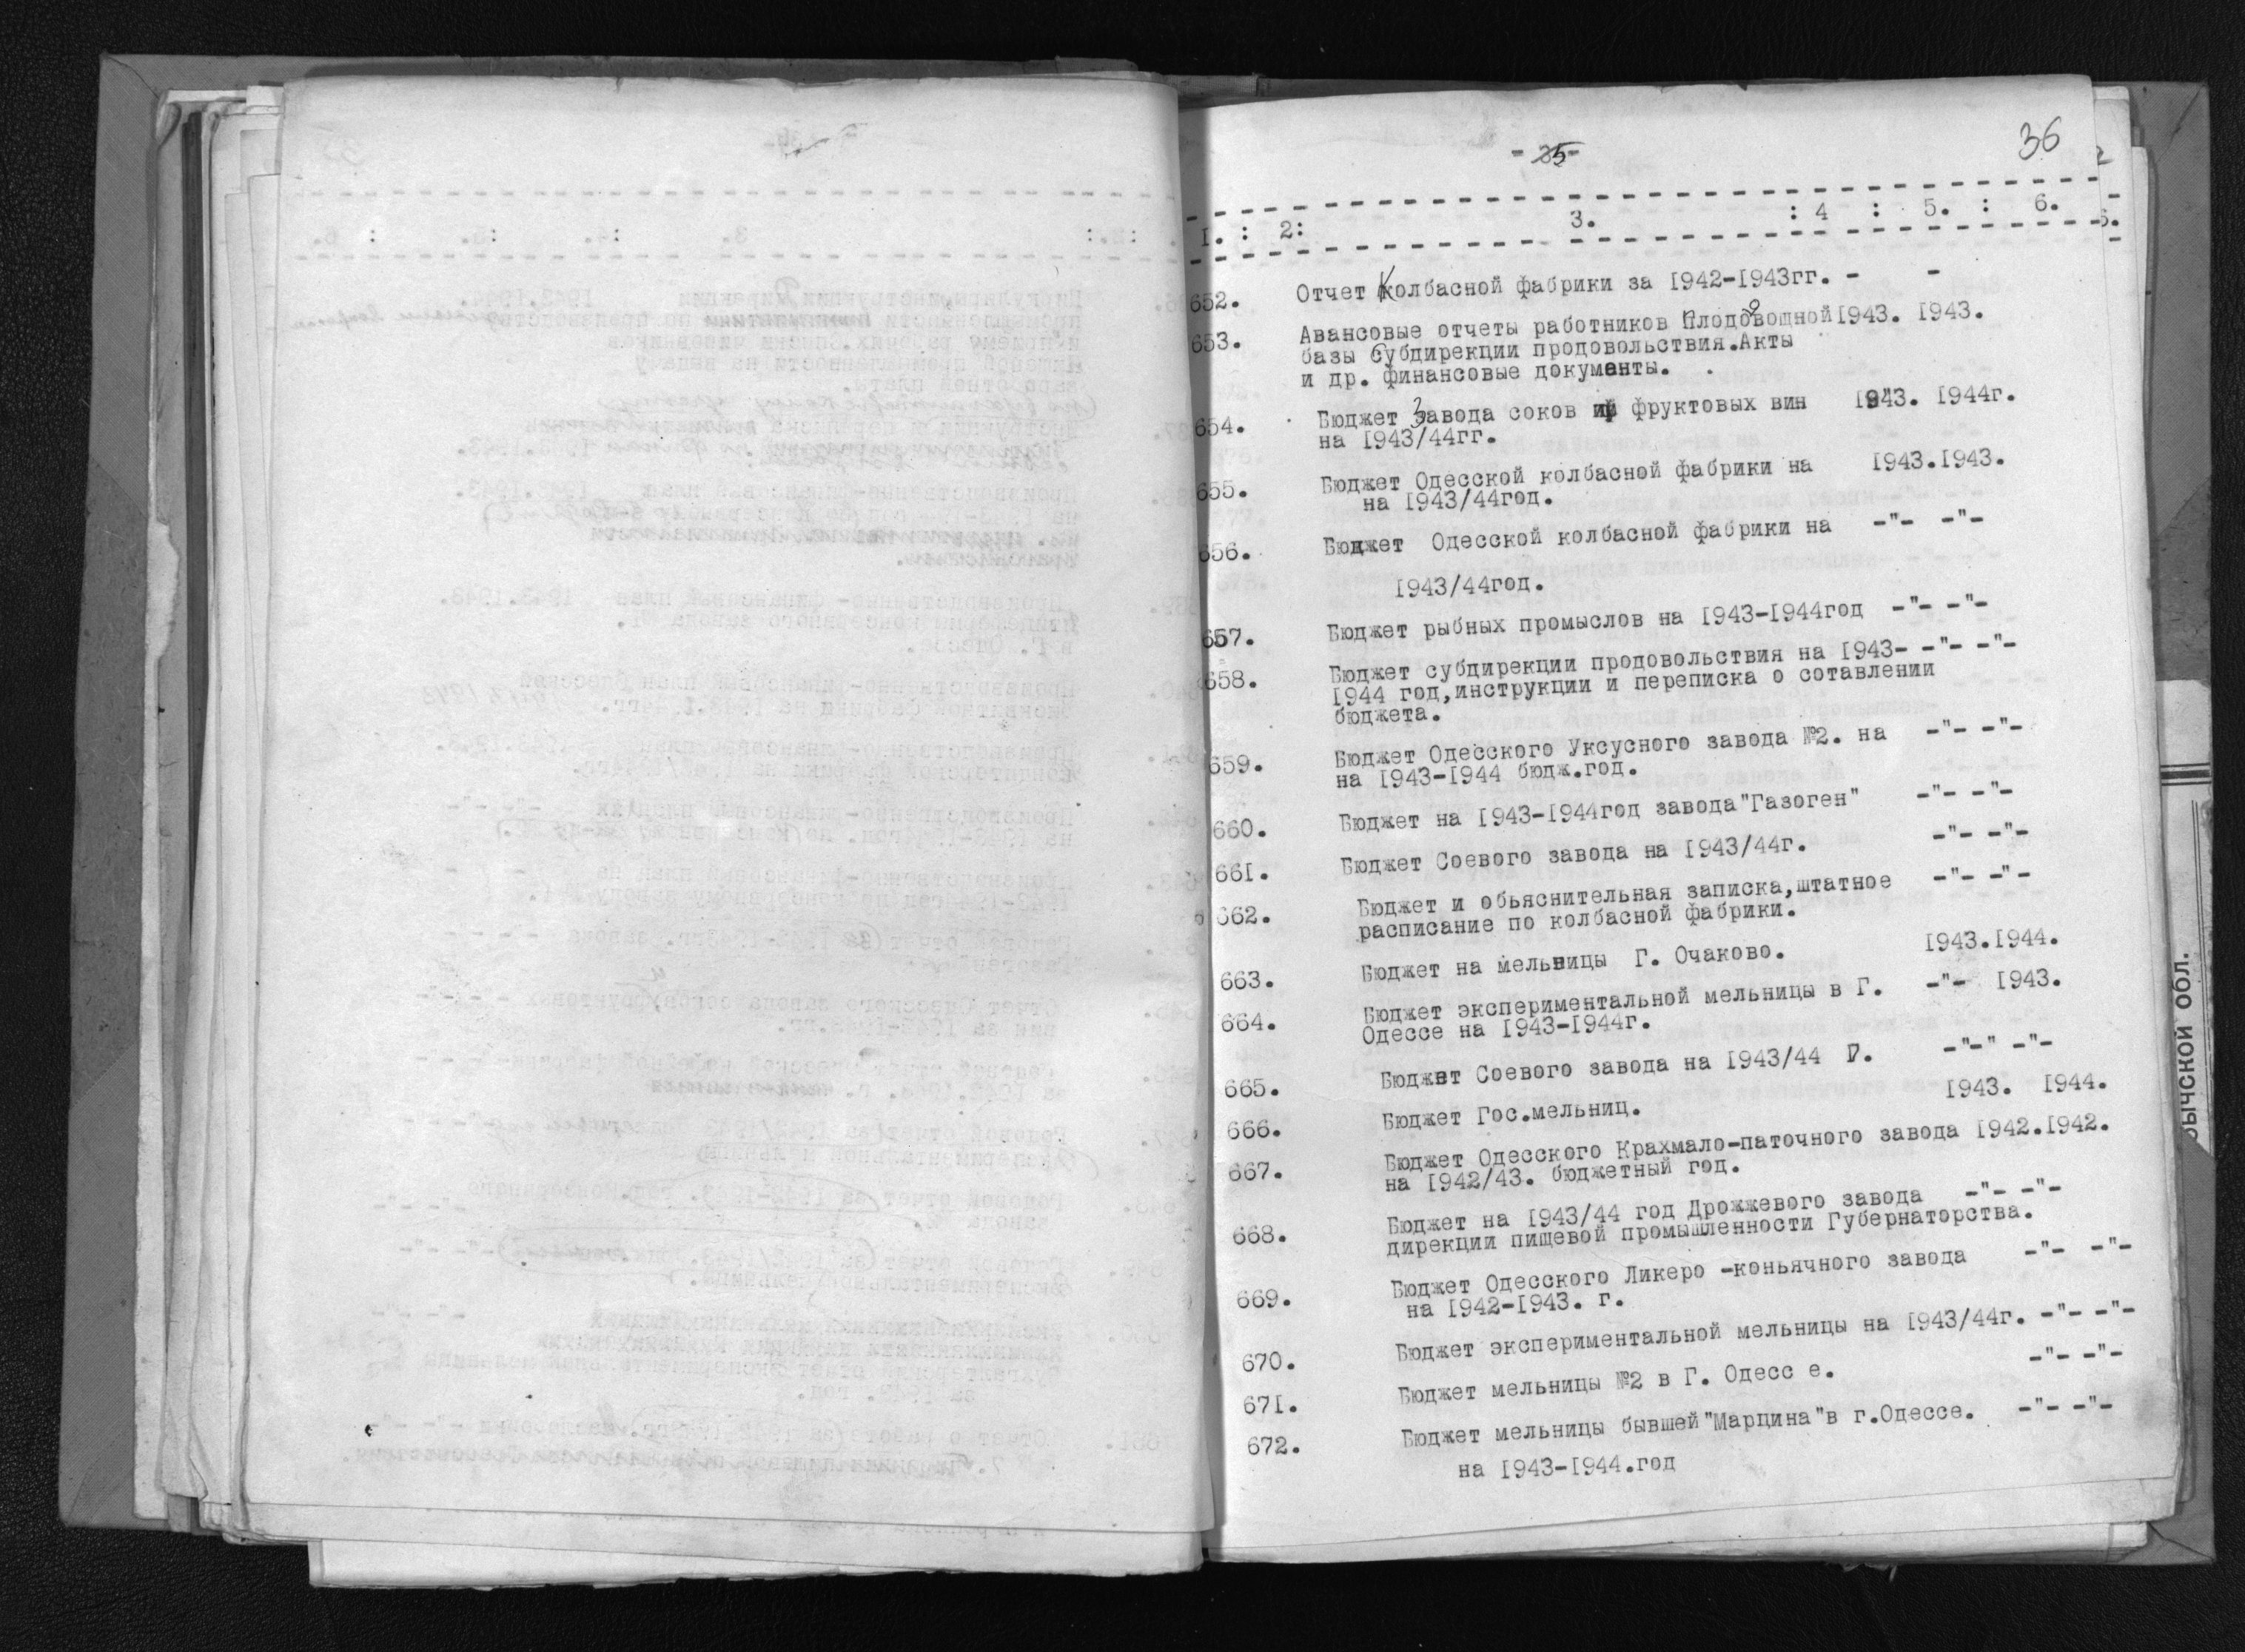 36
- 35 -
1. : 2: 3. : 4 : 5. : 6.
6.
652. Отчет Колбасной фабрики за 1942-1943гг. - -
653. Авансовые отчеты работников Плодовощной 1943. 1943.
базы Субдирекции продовольствия.Акты
и др. финансовые документы.
654. Бюджет Завода соков и фруктовых вин 1943. 1944г.
на 1943/44гг.
655. Бюджет Одесской колбасной фабрики на 1943.1943.
на 1943/44год.
656. Бюджет Одесской колбасной фабрики на -"- -"-
1943/44год.
657. Бюджет рыбных промыслов на 1943-1944год -"- -"-
658. Бюджет субдирекции продовольствия на 1943- -"- -"-
1944 год,инструкции и переписка о сотавлении
бюджета.
659. Бюджет Одесского Уксусного завода №2. на -"- -"-
на 1943-1944 бюдж.год.
660. Бюджет на 1943-1944год завода"Газоген" -"- -"-
661. Бюджет Соевого завода на 1943/44г. -"- -"-
662. Бюджет и обьяснительная записка,штатное -"- -"-
расписание по колбасной фабрики.
663. Бюджет на мельницы Г. Очаково. 1943.1944.
664. Бюджет экспериментальной мельницы в Г. -"- 1943.
Одессе на 1943-1944г.
665. Бюджет Соевого завода на 1943/44 Г. -"-" -"-
666. Бюджет Гос.мельниц. 1943. 1944.
667. Бюджет Одесского Крахмало-паточного завода 1942.1942.
на 1942/43. бюджетный год.
668. Бюджет на 1943/44 год Дрожжевого завода -"- -"-
дирекции пищевой промышленности Губернаторства.
669. Бюджет Одесского Ликеро -коньячного завода -"- -"-
на 1942-1943. г.
670. Бюджет экспериментальной мельницы на 1943/44г. -"- -"-
671. Бюджет мельницы №2 в Г. Одесс е. -"- -"-
672. Бюджет мельницы бывшей"Марцина"в г.Одессе. -"- -"-
на 1943-1944.год
ОБЛ.